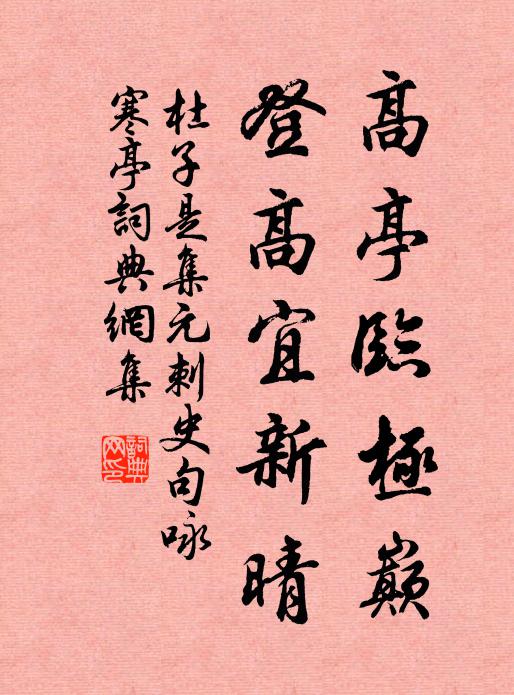 高亭臨極巔
登高宜新晴
杜子是集元刺史句咏
寒亭詞典網集
詞典网印